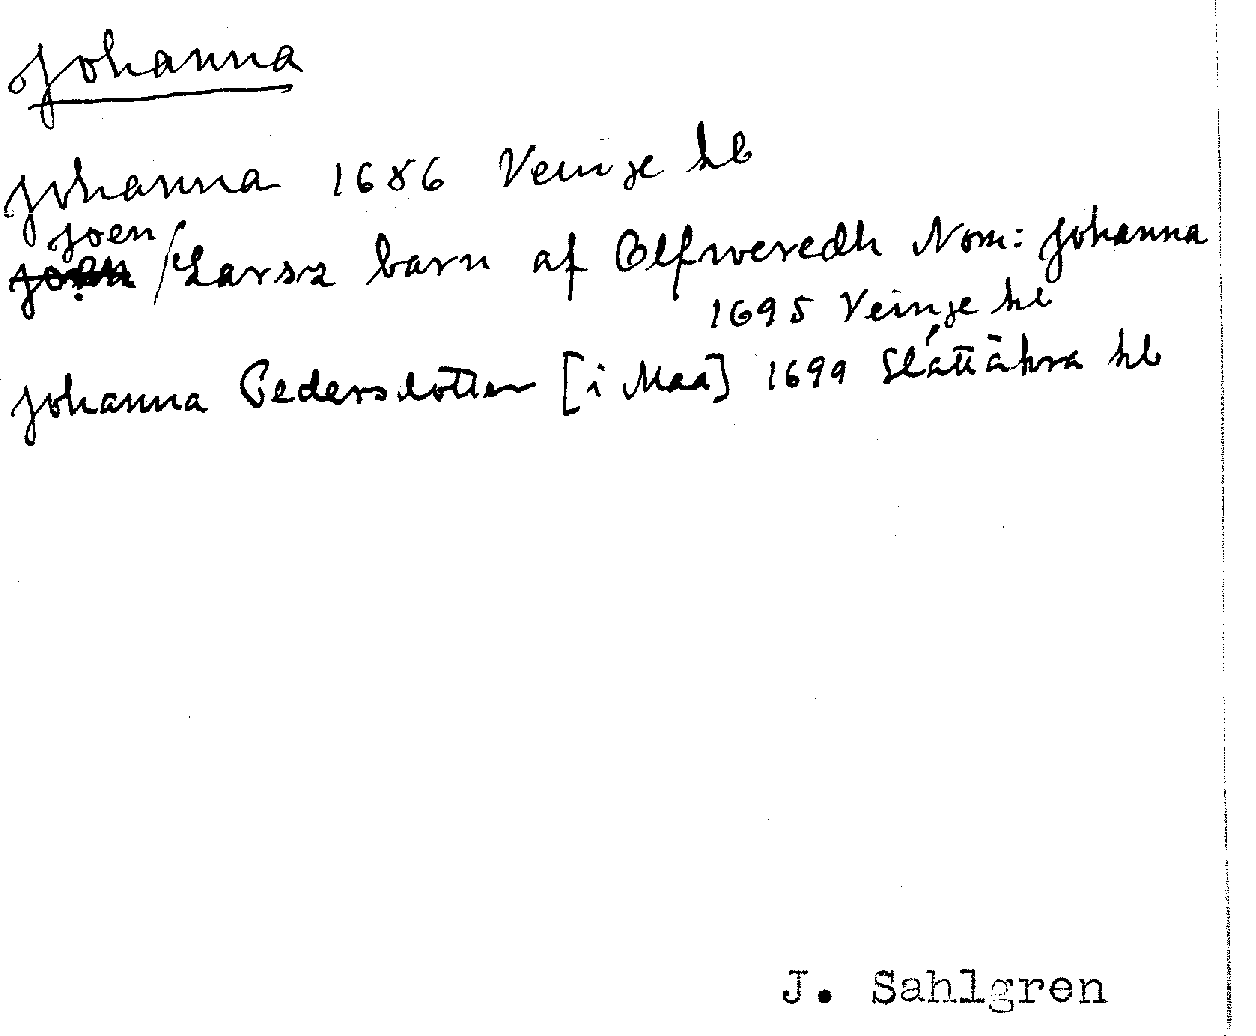 Johanna
Johanna 1686 Veinge kb
Joen
Larsz barn af Elfweredh Nom: Johanna
1695 Veinge kb
Johanna Pedersdotter [i Maa] 1699 Slättåkra kb
J. Sahlgren